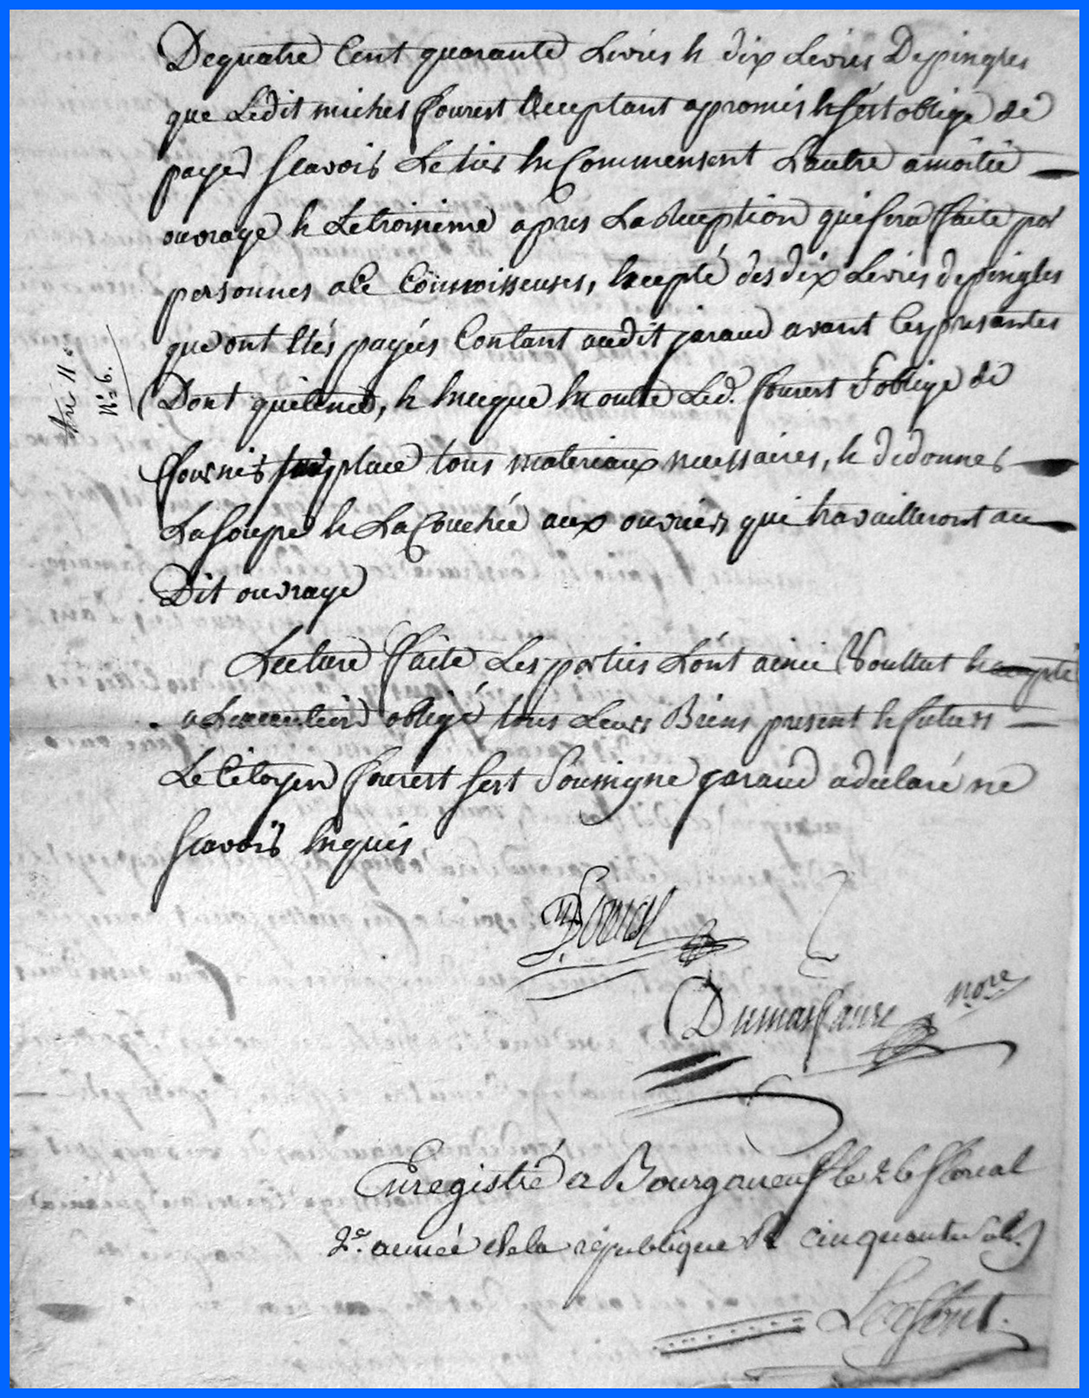 De quatre Cent quarante Livres & dix Livres Depingles
que Ledit michel fourest acceptant apromis & sest oblige de
payer scavoir Letier En Commensent Lautre amoitié
ouvrage & Letroisieme apres La Reception quisera faite par
personnes ace Connoisseuses, Excepté desdix Livres depingles
que ont Etés payées Contant audit jaraud avant Cespresantes
Dont quitence, & En outre Led. fourest Soblige de
fournir sur place tous materiaux necessaires, & dedonner
La Soupe & La Couchée aux ouvriers qui travailleront au
Dit ouvrage
Lecture faite Les parties Lont ainci Voullut & accepté
a Lexecution obligé tous Leurs Biens present & futurs
Le Citoyen fourest sest Soussigne jaraud adeclaré ne
scavoir Enquis
fourest
Dumasfaure nore
Enregistré a Bourganeuf le 26 floreal
2e. année dela république R cinquante sols.